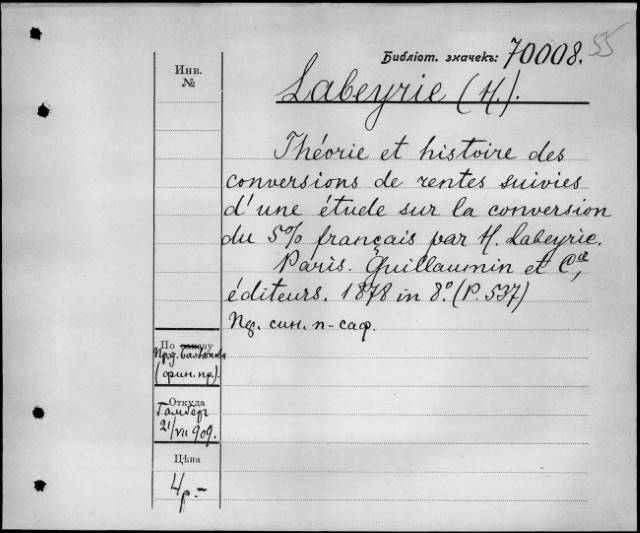 Библіот. значекъ: 70008. 55
Инв.
№
Labeyrie (H.).
Théorie et histoire des
conversions de rentes suivies
d'une étude sur la conversion
du 5% français par H. Labeyrie.
Paris. Guillaumin et Cie,
éditeurs. 1878 in 8º. (P. 537)
син. п-саф.
По заказу
(фин. пр.).
Откуда
21/VII 909.
Цѣна
4 р. –